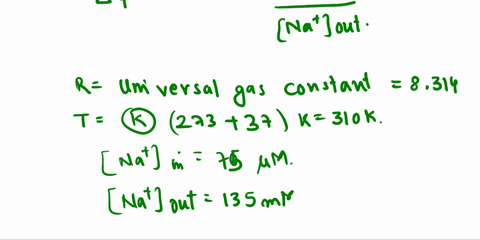 [Na⁺] out.
R = Universal gas constant = 8.314
T = (K) (273 + 37) K = 310 K.
[Na⁺] in = μM.
[Na⁺] out = 135